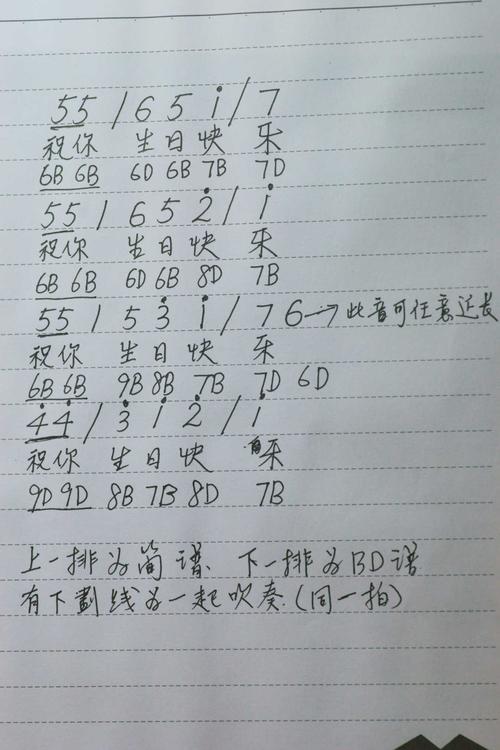 55 / 6 5 i / 7
祝你 生日快 乐
6B 6B 6D 6B 7B 7D
55 / 6 5 2̇ / i
祝你 生日快 乐
6B 6B 6D 6B 8D 7B
55 / 5 3̇ i / 7 6 → 此音可任意延长
祝你 生日快 乐
6B 6B 9B 8B 7B 7D 6D
4̇4̇ / 3̇ i 2̇ / i
祝你 生日快 乐
9D 9D 8B 7B 8D 7B
上一排为简谱、下一排为BD谱
有下划线为一起吹奏.(同一拍)